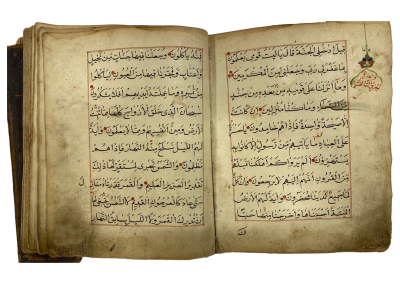 قيل ادخل الجنة قال يا ليت قومي يعلمون
بما غفر لي ربي وجعلني من المكرمين
وما أنزلنا على قومه من بعده من جند
من السماء وما كنا منزلين إن كانت
إلا صيحة واحدة فإذا هم خامدون يا حسرة
على العباد ما يأتيهم من رسول إلا كانوا به
يستهزؤن ألم يروا كم أهلكنا قبلهم
من القرون أنهم إليهم لا يرجعون وإن كل
لما جميع لدينا محضرون وآية لهم الأرض
الميتة أحييناها وأخرجنا منها حبا
فمنه يأكلون وجعلنا فيها جنات من نخيل
وأعناب وفجرنا فيها من العيون ليأكلوا
من ثمره وما عملته أيديهم أفلا يشكرون
سبحان الذي خلق الأزواج كلها مما تنبت
الأرض ومن أنفسهم ومما لا يعلمون وآية
لهم الليل نسلخ منه النهار فإذا هم
مظلمون والشمس تجري لمستقر لها ذلك
تقدير العزيز العليم والقمر قدرناه منازل
حتى عاد كالعرجون القديم لا الشمس ينبغي لها
أن تدرك القمر ولا الليل سابق النهار